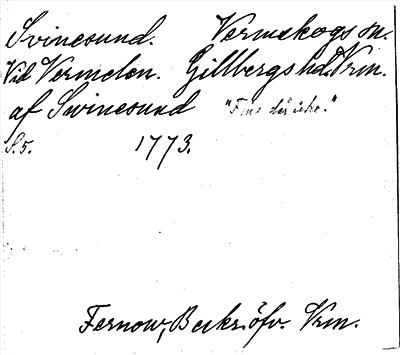 Svinesund. Värmskogs sn.
Vid Värmelen. Gillbergs hd. Vrm.
af Swinesund "Fins där icke."
S. 5. 1773.
Fernow, Beskr. öfv. Vrm.